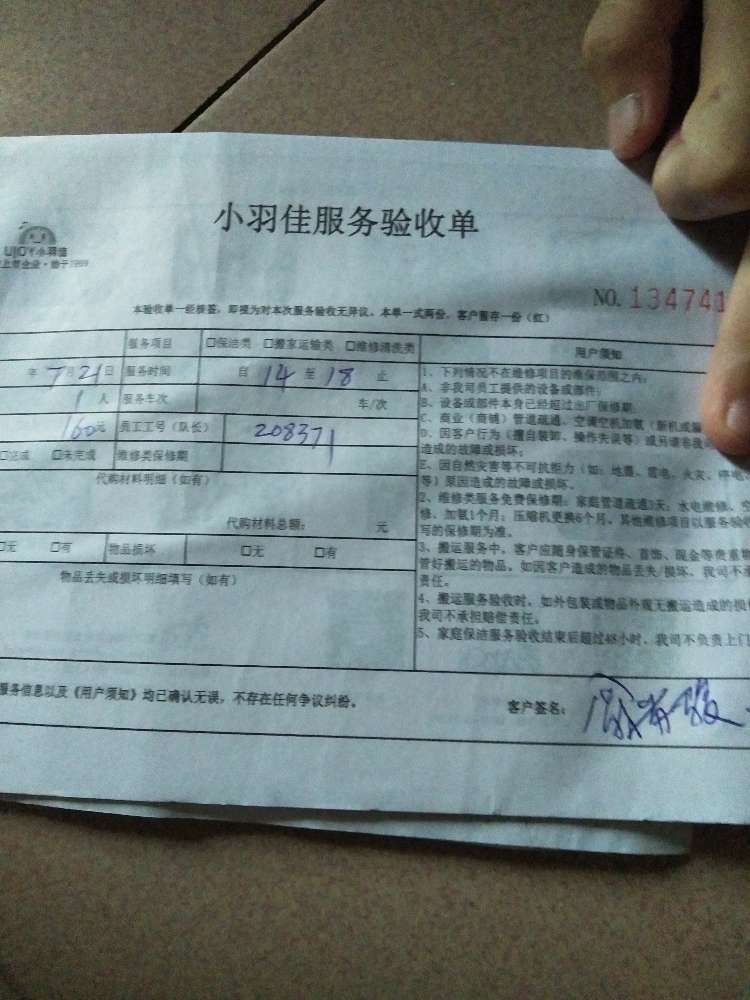 小羽佳服务验收单
UJOY小羽佳
上市企业·始于1999
NO. 134741
本验收单一经签签，即视为对本次服务验收无异议。本单一式两份，客户留存一份（红）
年 7月21日 服务时间 自 14 至 18 止
服务项目 □保洁类 □搬家运输类 □维修清洗类
1人 服务车次 车/次
160元 员工工号（队长） 208371
□完成 □未完成 维修类保修期
代购材料明细（如有）
代购材料总额： 元
□无 □有 物品损坏 □无 □有
物品丢失或损坏明细填写（如有）
用户须知
1、下列情况不在维修项目的维保范围之内：
A、非我司员工提供的设备或部件；
B、设备或部件本身已经超过出厂保修期；
C、商业（商铺）管道疏通、空调空机加氨（新机或漏
D、因客户行为（擅自装卸、操作失误等）或另请非我司
造成的故障或损坏；
E、因自然灾害等不可抗拒力（如：地震、雷电、火灾、停电
等）原因造成的故障或损坏。
2、维修类服务免费保修期：家庭管道疏通3天；水电维修、空
修、加氨1个月；压缩机更换6个月，其他维修项目以服务验收
写的保修期为准。
3、搬运服务中，客户应随身保管证件、首饰、现金等贵重物
管好搬运的物品，如因客户造成的物品丢失/损坏，我司不承
责任。
4、搬运服务验收时，如外包装或物品外观无搬运造成的损
我司不承担赔偿责任。
5、家庭保洁服务验收结束后超过48小时，我司不负责上门
服务信息以及《用户须知》均已确认无误，不存在任何争议纠纷。
客户签名：